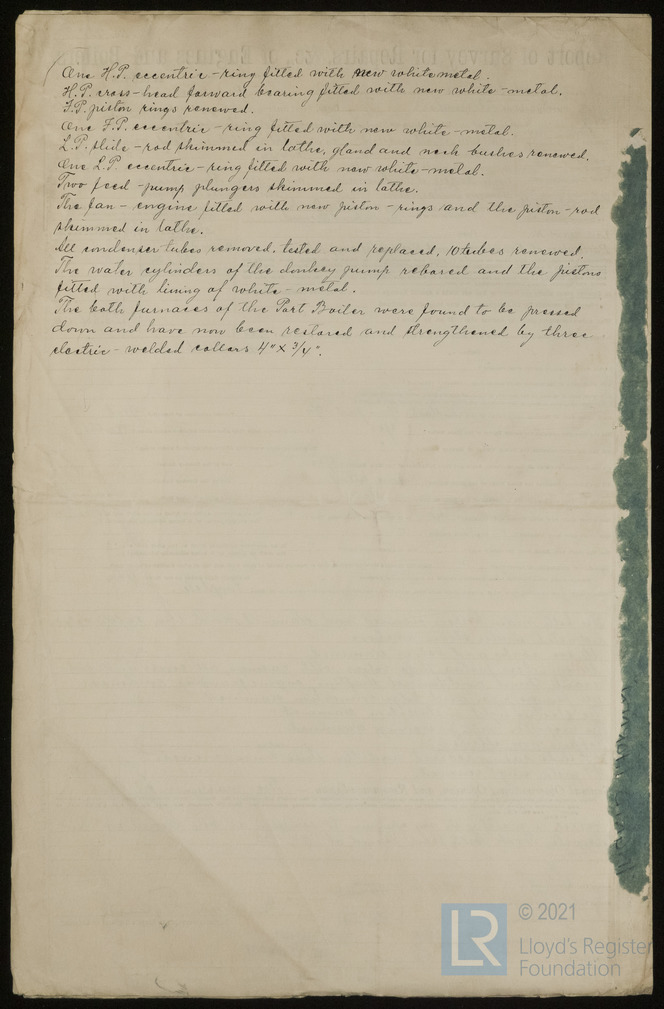 One H.P. eccentric-ring fitted with new white metal.
H.P. cross-head forward bearing fitted with new white-metal.
I.P. piston rings renewed.
One I.P. eccentric-ring fitted with new white-metal.
L.P. slide-rod skimmed in lathe, gland and neck bushes renewed.
One L.P. eccentric-ring fitted with new white-metal.
Two feed-pump plungers skimmed in lathe.
The fan-engine fitted with new piston-rings and the piston-rod
skimmed in lathe.
All condenser tubes removed, tested and replaced, 10 tubes renewed.
The water cylinders of the donkey pump rebored and the pistons
fitted with lining of white-metal.
The both furnaces of the Port Boiler were found to be pressed
down and have now been restored and strengthened by three
electric-welded collars 4" x 3/4".
© 2021
Lloyd's Register
Foundation
LR